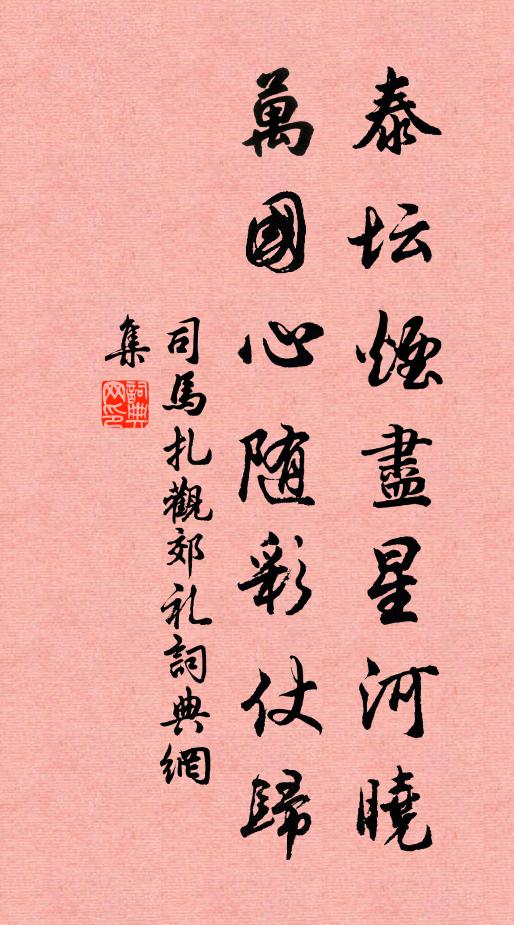 泰坛煙盡星河曉
萬國心随彩仗歸
司馬扎觀郊礼詞典網
集
詞典
网印